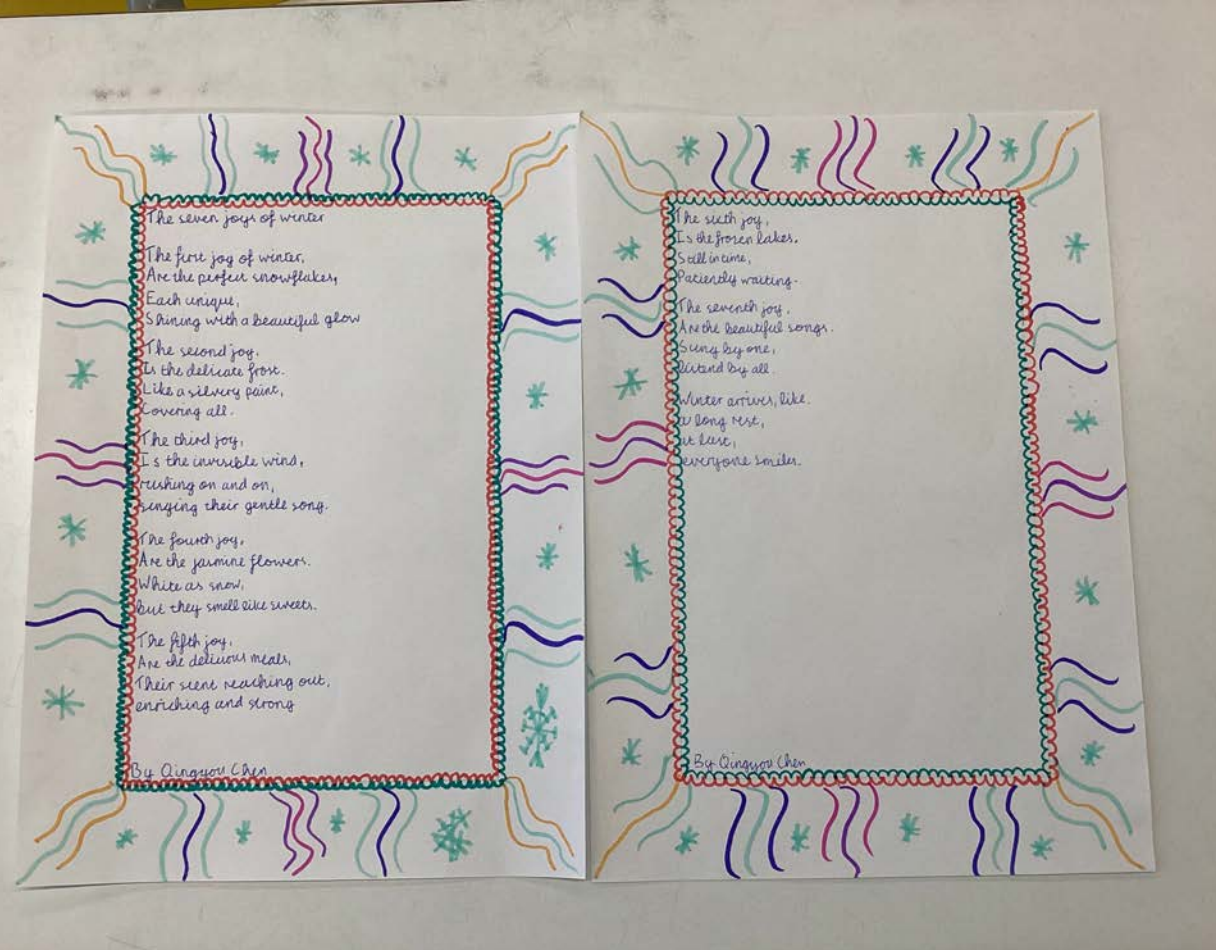 The seven joys of winter
The first joy of winter,
Are the perfect snowflakes,
Each unique,
Shining with a beautiful glow
The second joy.
Is the delicate frost.
Like a silvery paint,
Covering all.
The third joy,
Is the invisible wind,
rushing on and on,
singing their gentle song.
The fourth joy,
Are the jasmine flowers.
White as snow,
but they smell like sweets.
The fifth joy,
Are the delicious meals,
Their scent reaching out,
enriching and strong
By Qingyou Chen
The sixth joy,
Is the frozen lakes.
Still in time,
Patiently waiting.
The seventh joy,
Are the beautiful songs.
Sung by one,
by all.
Winter arrives, like.
a long rest,
at last,
everyone smiles.
By Qingyou Chen